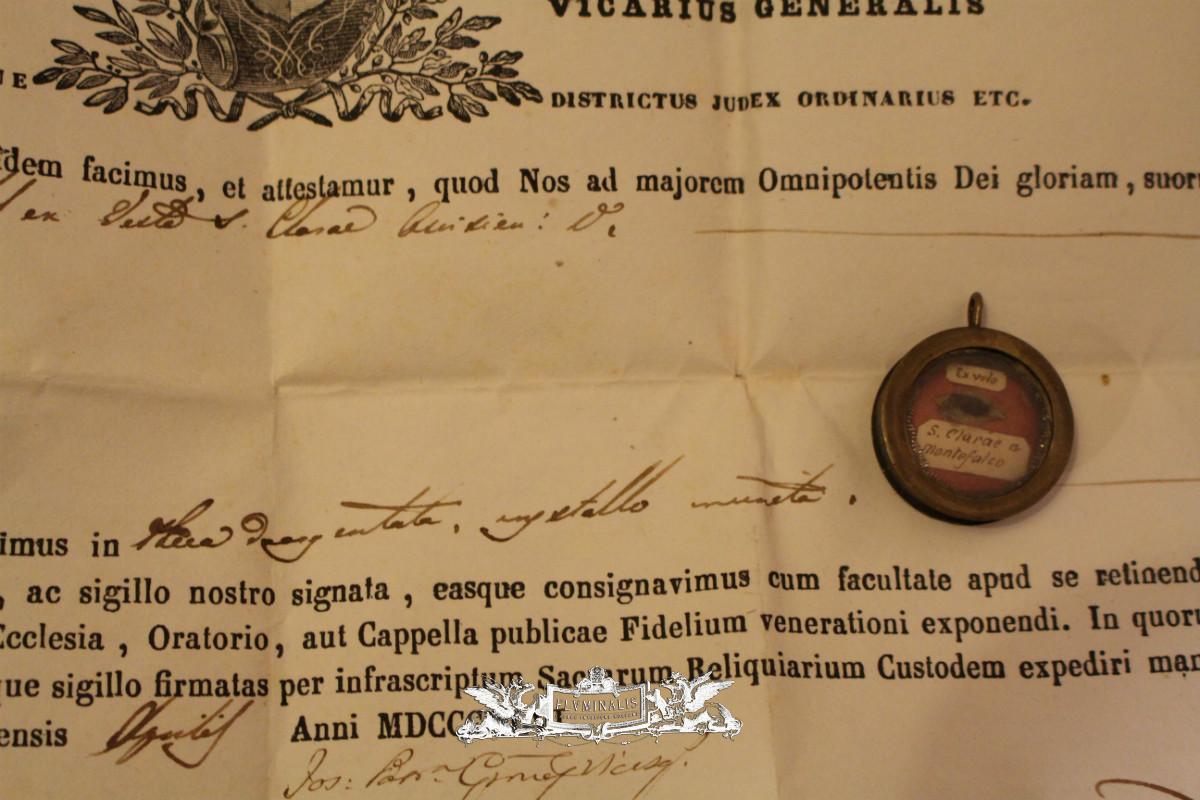 VICARIUS GENERALIS
DISTRICTUS JUDEX ORDINARIUS ETC.
dem facimus, et attestamur, quod Nos ad majorem Omnipotentis Dei gloriam, suor
ex S. Clarae
Ex velo
S. Clarae a
Montefalco
imus in theca argentata, crystallo munita.
, ac sigillo nostro signata, easque consignavimus cum facultate apud se retinend
Ecclesia, Oratorio, aut Cappella publicae Fidelium venerationi exponendi. In quor
ue sigillo firmatas per infrascriptum Sacrarum Reliquiarium Custodem expediri man
ensis Aprilis Anni MDCCC
Jos:
ILLUMINALIS